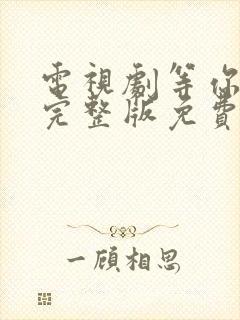 電視劇等你
完整版免費
一顧相思